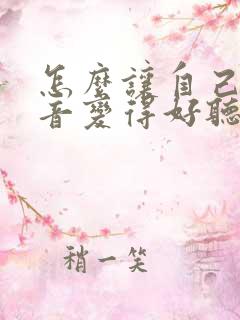 怎麼讓自己
音變得好聽
稍一笑